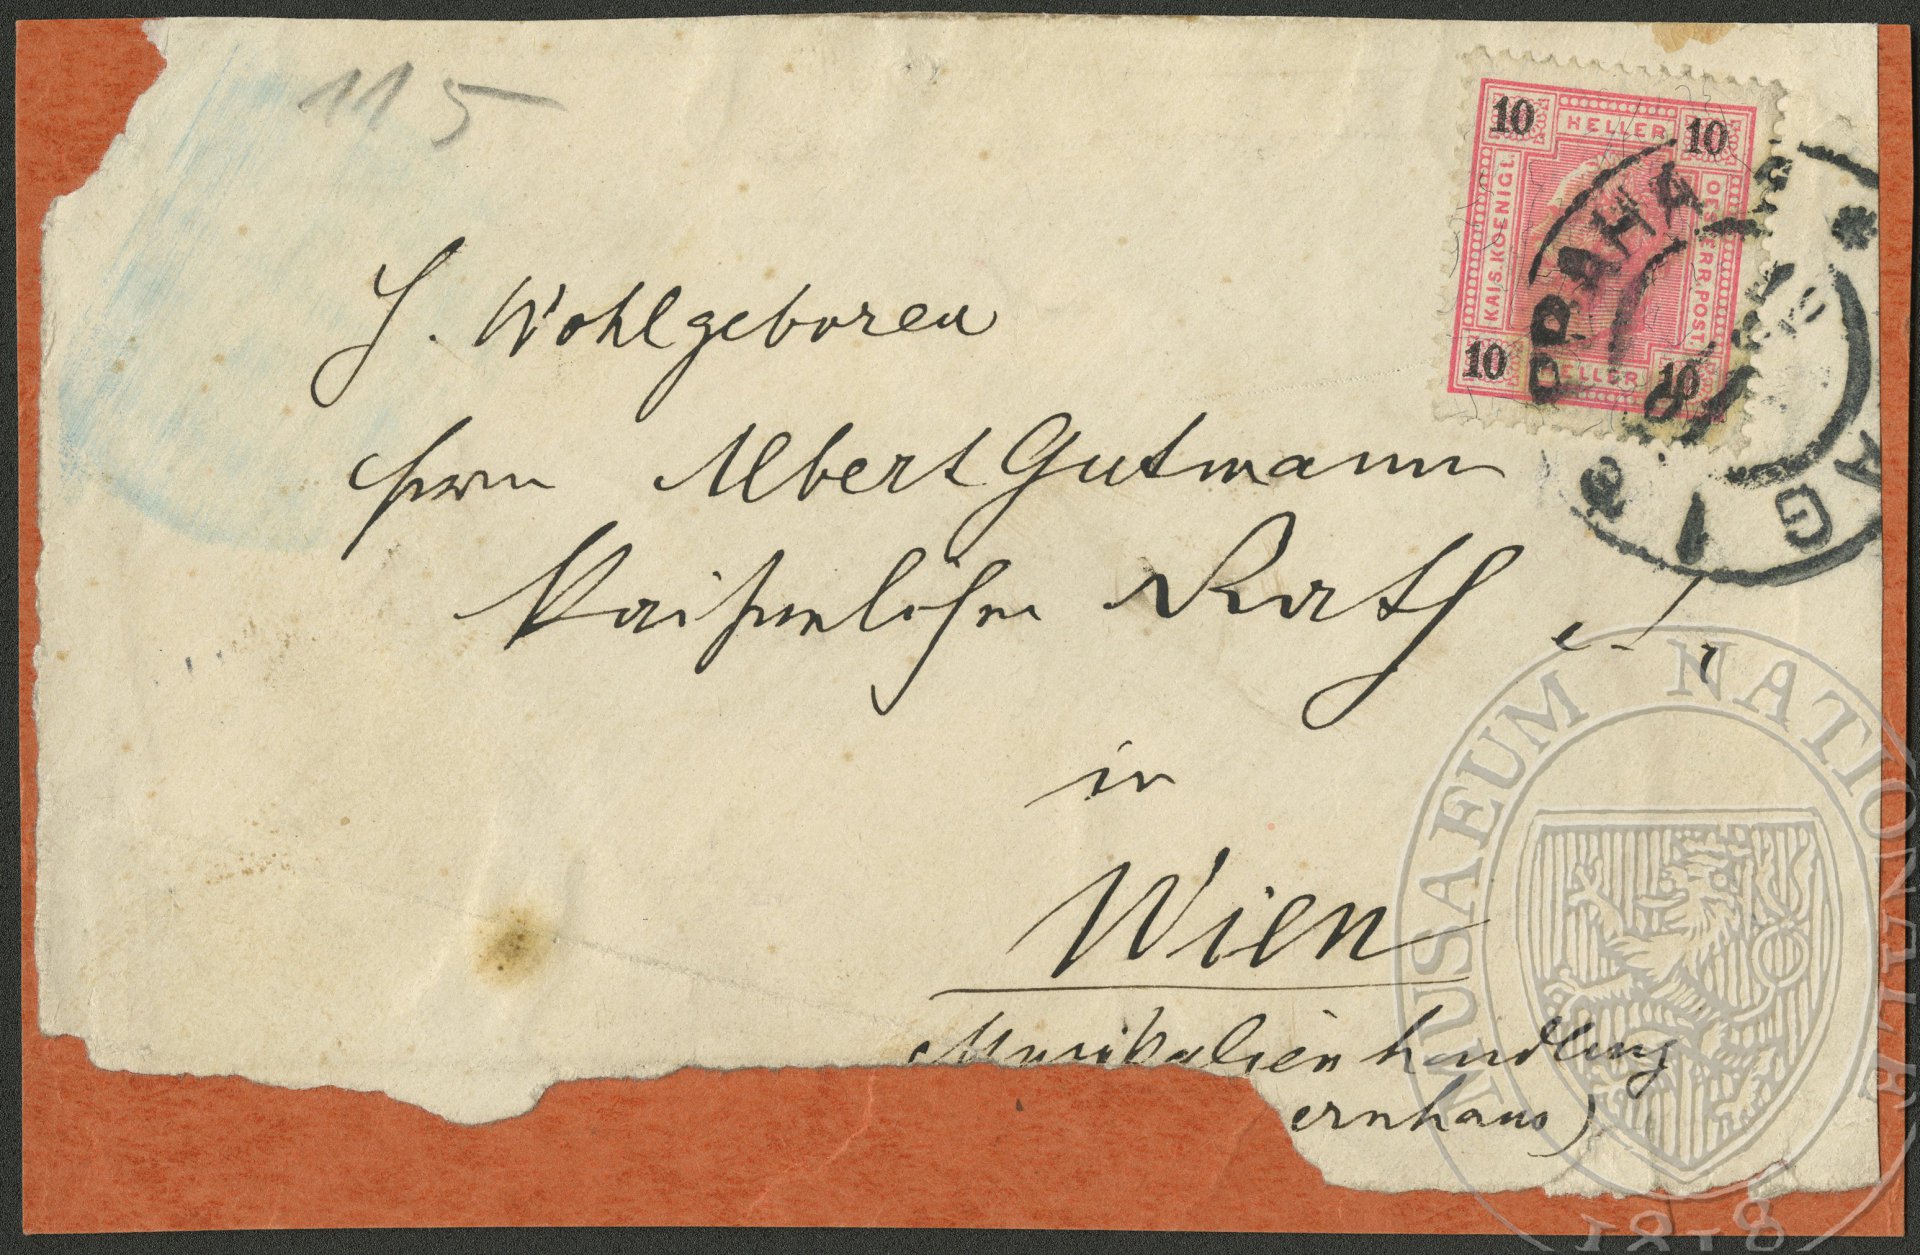 115
S. Wohlgeboren
Herrn Albert Gutmann
Kaiserlicher Rath etc
in
Wien
Musikalienhandlung
ernhaus)
10 HELLER 10
KAIS. KOENIGL.
OESTERR. POST
10 HELLER 10
PRAHA
MUSAEUM NATIONALE
1818